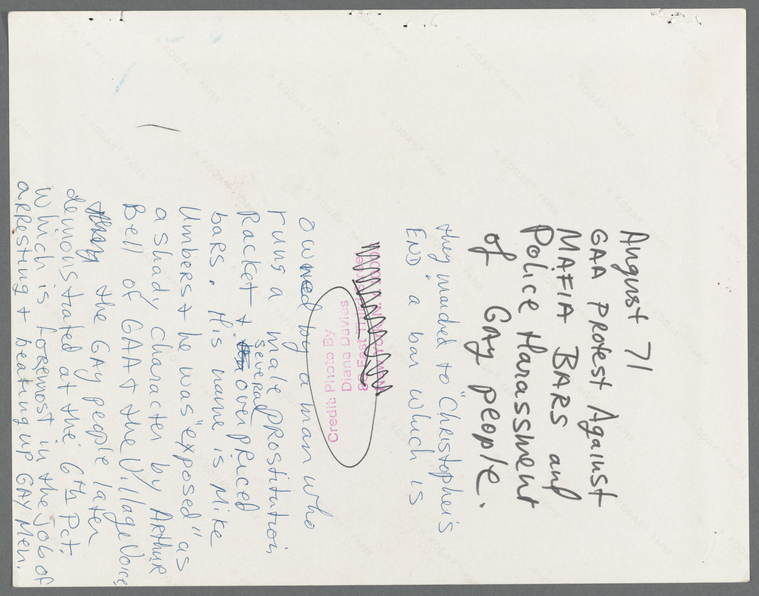 August 71
GAA Protest Against
MAFIA BARS and
Police Harassment
of GAY people.
they marched to "Christopher's
END" a bar which is
Credit: Photo By
Diana Davies
owned by a man who
runs a male prostitution
Racket + several over priced
bars. His name is Mike
Umbers + he was "exposed" as
a shady character by ARTHUR
Bell of GAA + the Village Voice
the GAY people later
demonstrated at the 6th Pct.
Which is foremost in the job of
arresting + beating up GAY Men.